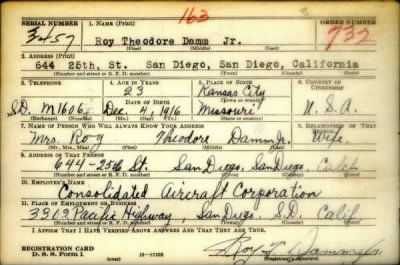 163
SERIAL NUMBER 1. NAME (Print) ORDER NUMBER
3457 Roy Theodore Damm Jr. 737
(First) (Middle) (Last)
2. ADDRESS (Print)
644 25th. St. San Diego, San Diego, California
(Number and street or R. F. D. number) (Town) (County) (State)
3. TELEPHONE 4. AGE IN YEARS 5. PLACE OF BIRTH 6. COUNTRY OF CITIZENSHIP
23 Kansas City
DATE OF BIRTH (Town or county)
S.D. M1606 Dec. 4, 1916 Missouri U.S.A.
(Exchange) (Number) (Mo.) (Day) (Yr.) (State or country)
7. NAME OF PERSON WHO WILL ALWAYS KNOW YOUR ADDRESS 8. RELATIONSHIP OF THAT PERSON
Mrs. Roy Theodore Damm Jr. Wife.
(Mr., Mrs., Miss) (First) (Middle) (Last)
9. ADDRESS OF THAT PERSON
644-25th St. San Diego, San Diego, Calif
(Number and street or R. F. D. number) (Town) (County) (State)
10. EMPLOYER'S NAME
Consolidated Aircraft Corporation
11. PLACE OF EMPLOYMENT OR BUSINESS
3302 Pacific Highway, San Diego. S.D. Calif
(Number and street or R. F. D. number) (Town) (County) (State)
I AFFIRM THAT I HAVE VERIFIED ABOVE ANSWERS AND THAT THEY ARE TRUE.
REGISTRATION CARD
D. S. S. Form 1
Roy T. Damm Jr.